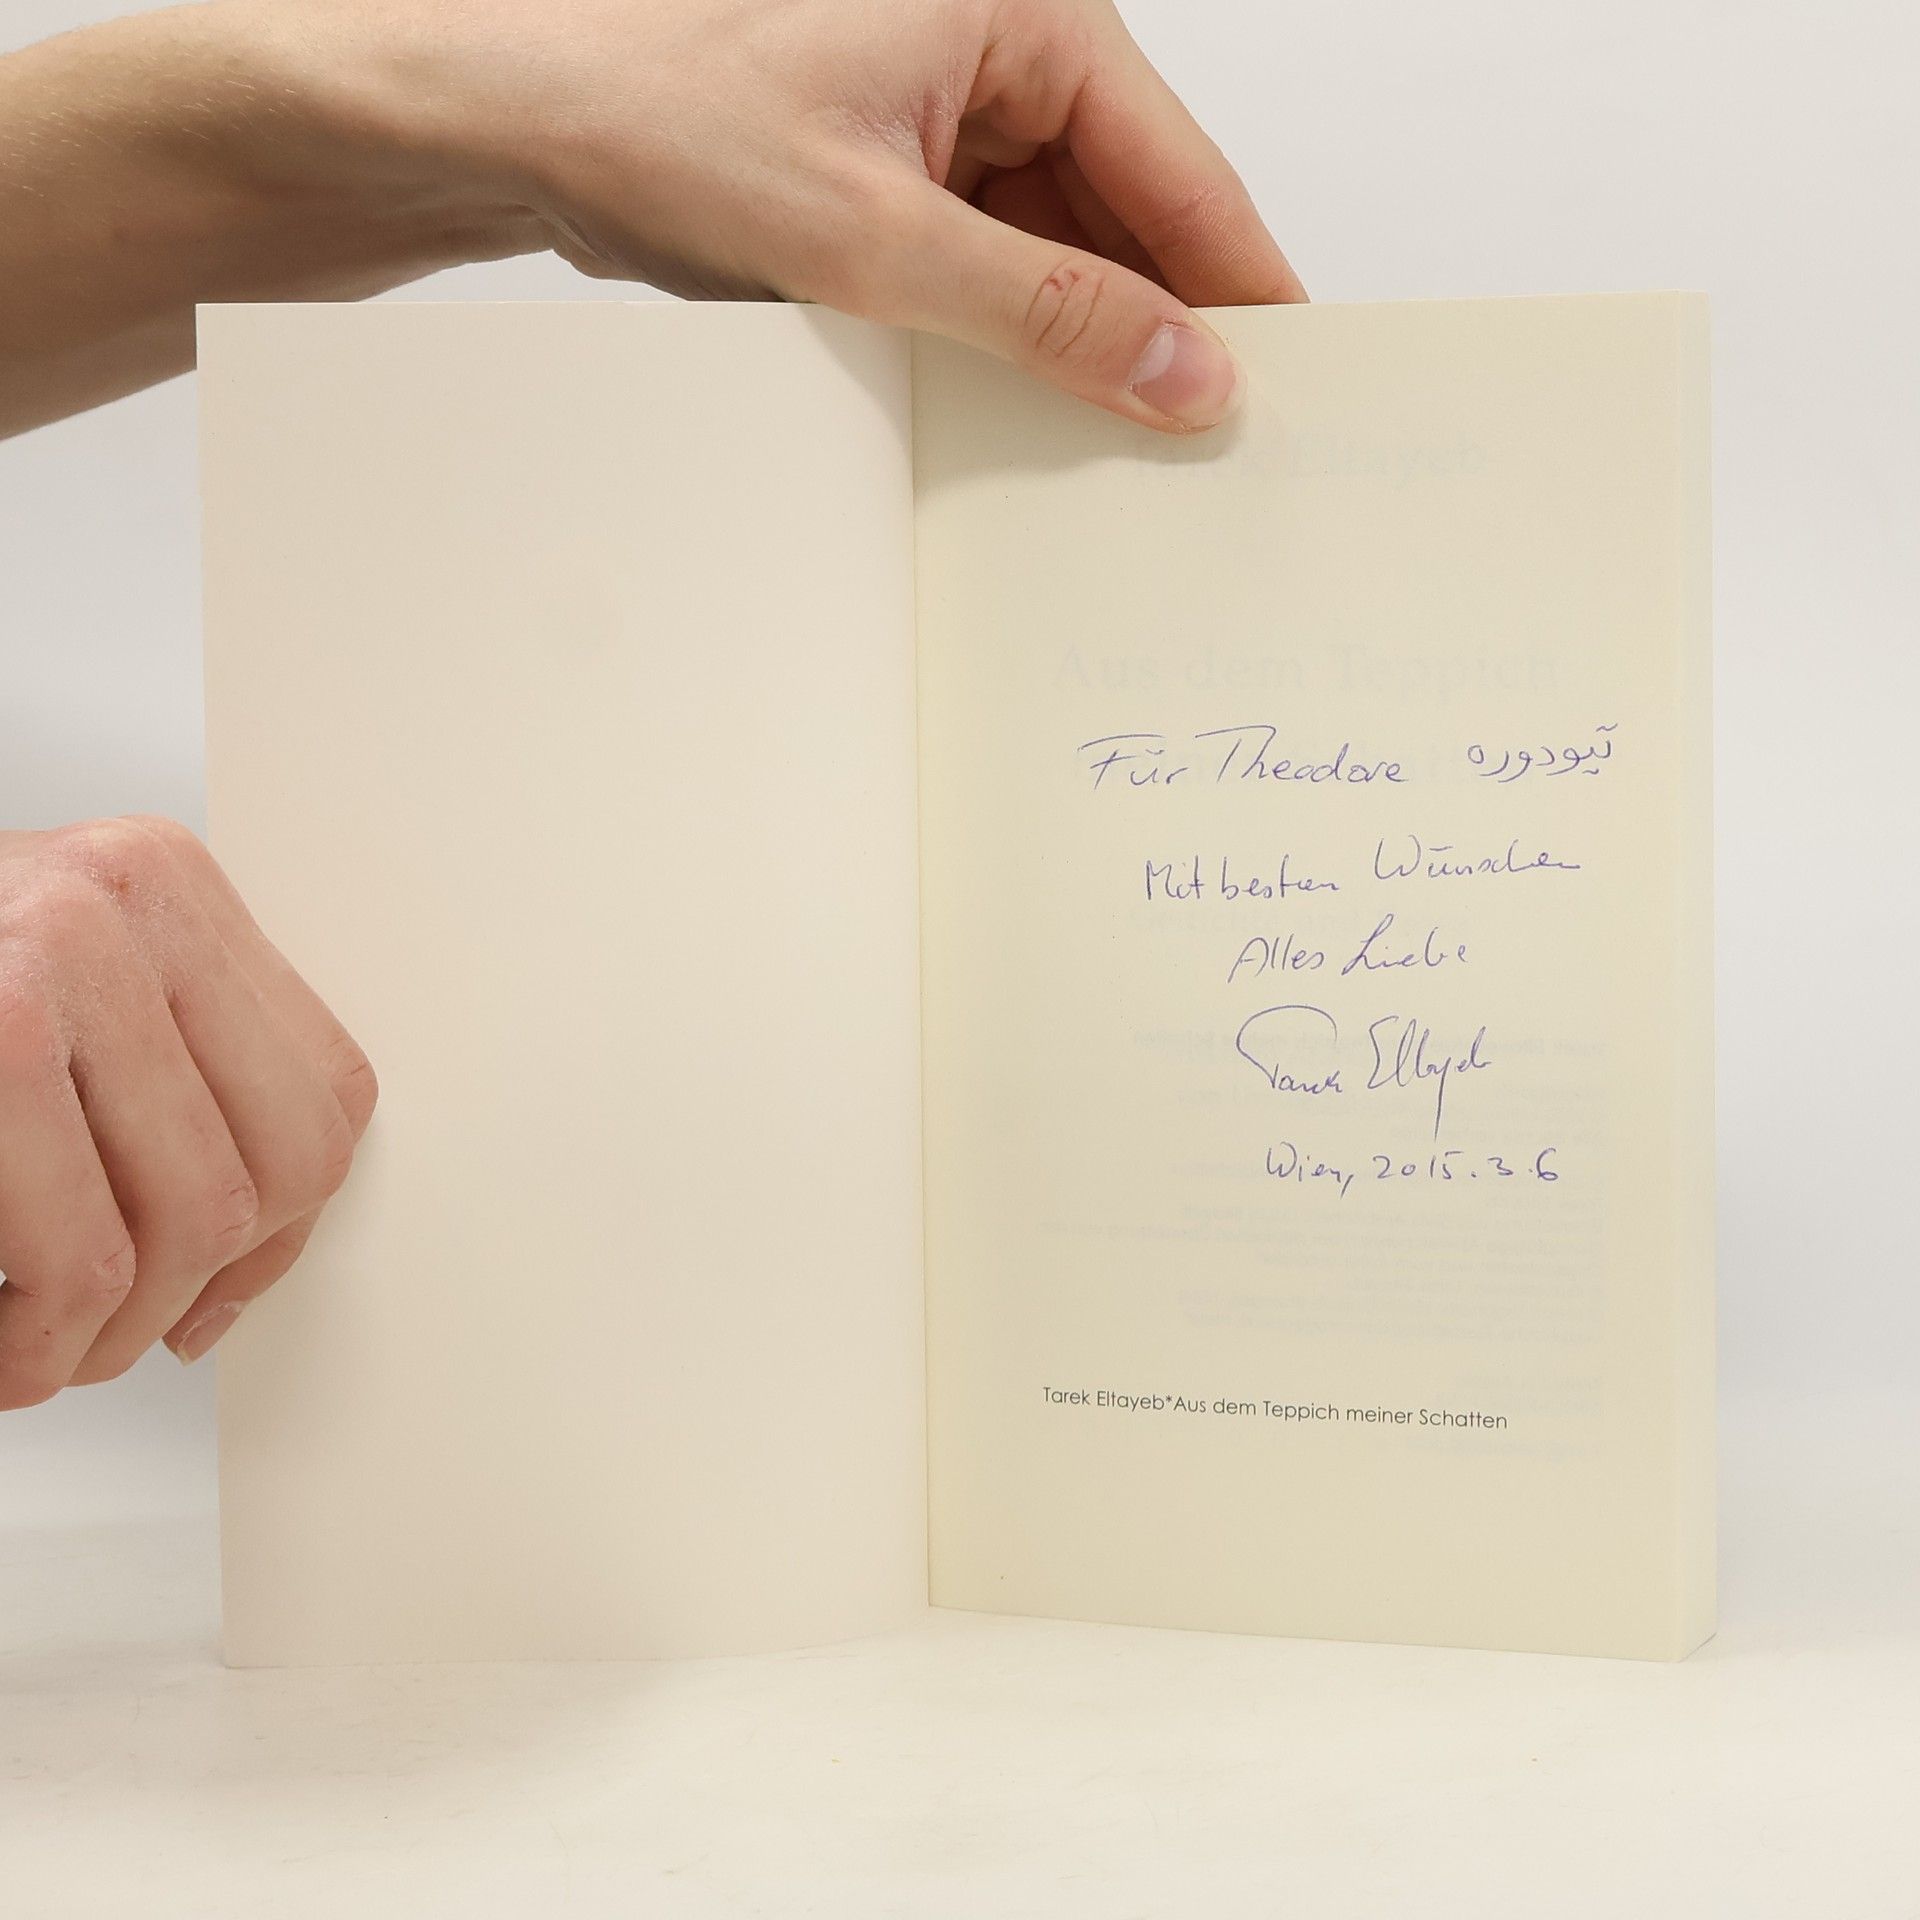 Tarek Eltayeb
Aus dem Teppich
Für Theodore تيودوره
Mit besten Wünschen
Alles Liebe
Tarek Eltayeb
Wien, 2015.3.6
Tarek Eltayeb*Aus dem Teppich meiner Schatten